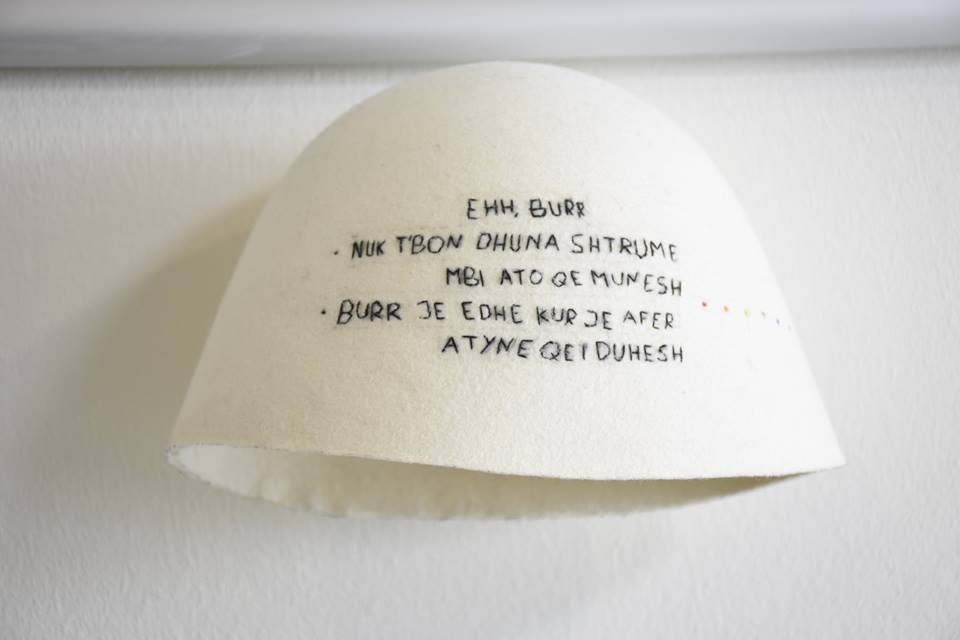 EHH, BURR
. NUK T'BON DHUNA SHTRUME
MBI ATO QE MUNESH
. BURR JE EDHE KUR JE AFER
ATYNE QE I DUHESH